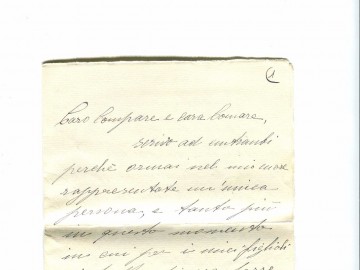 1
Caro Compare e cara Comare,
scrivo ad entrambi
perchè ormai nel mio cuore
rappresentate un'unica
persona, e tanto più
in questo momento
in cui per i miei figlioli